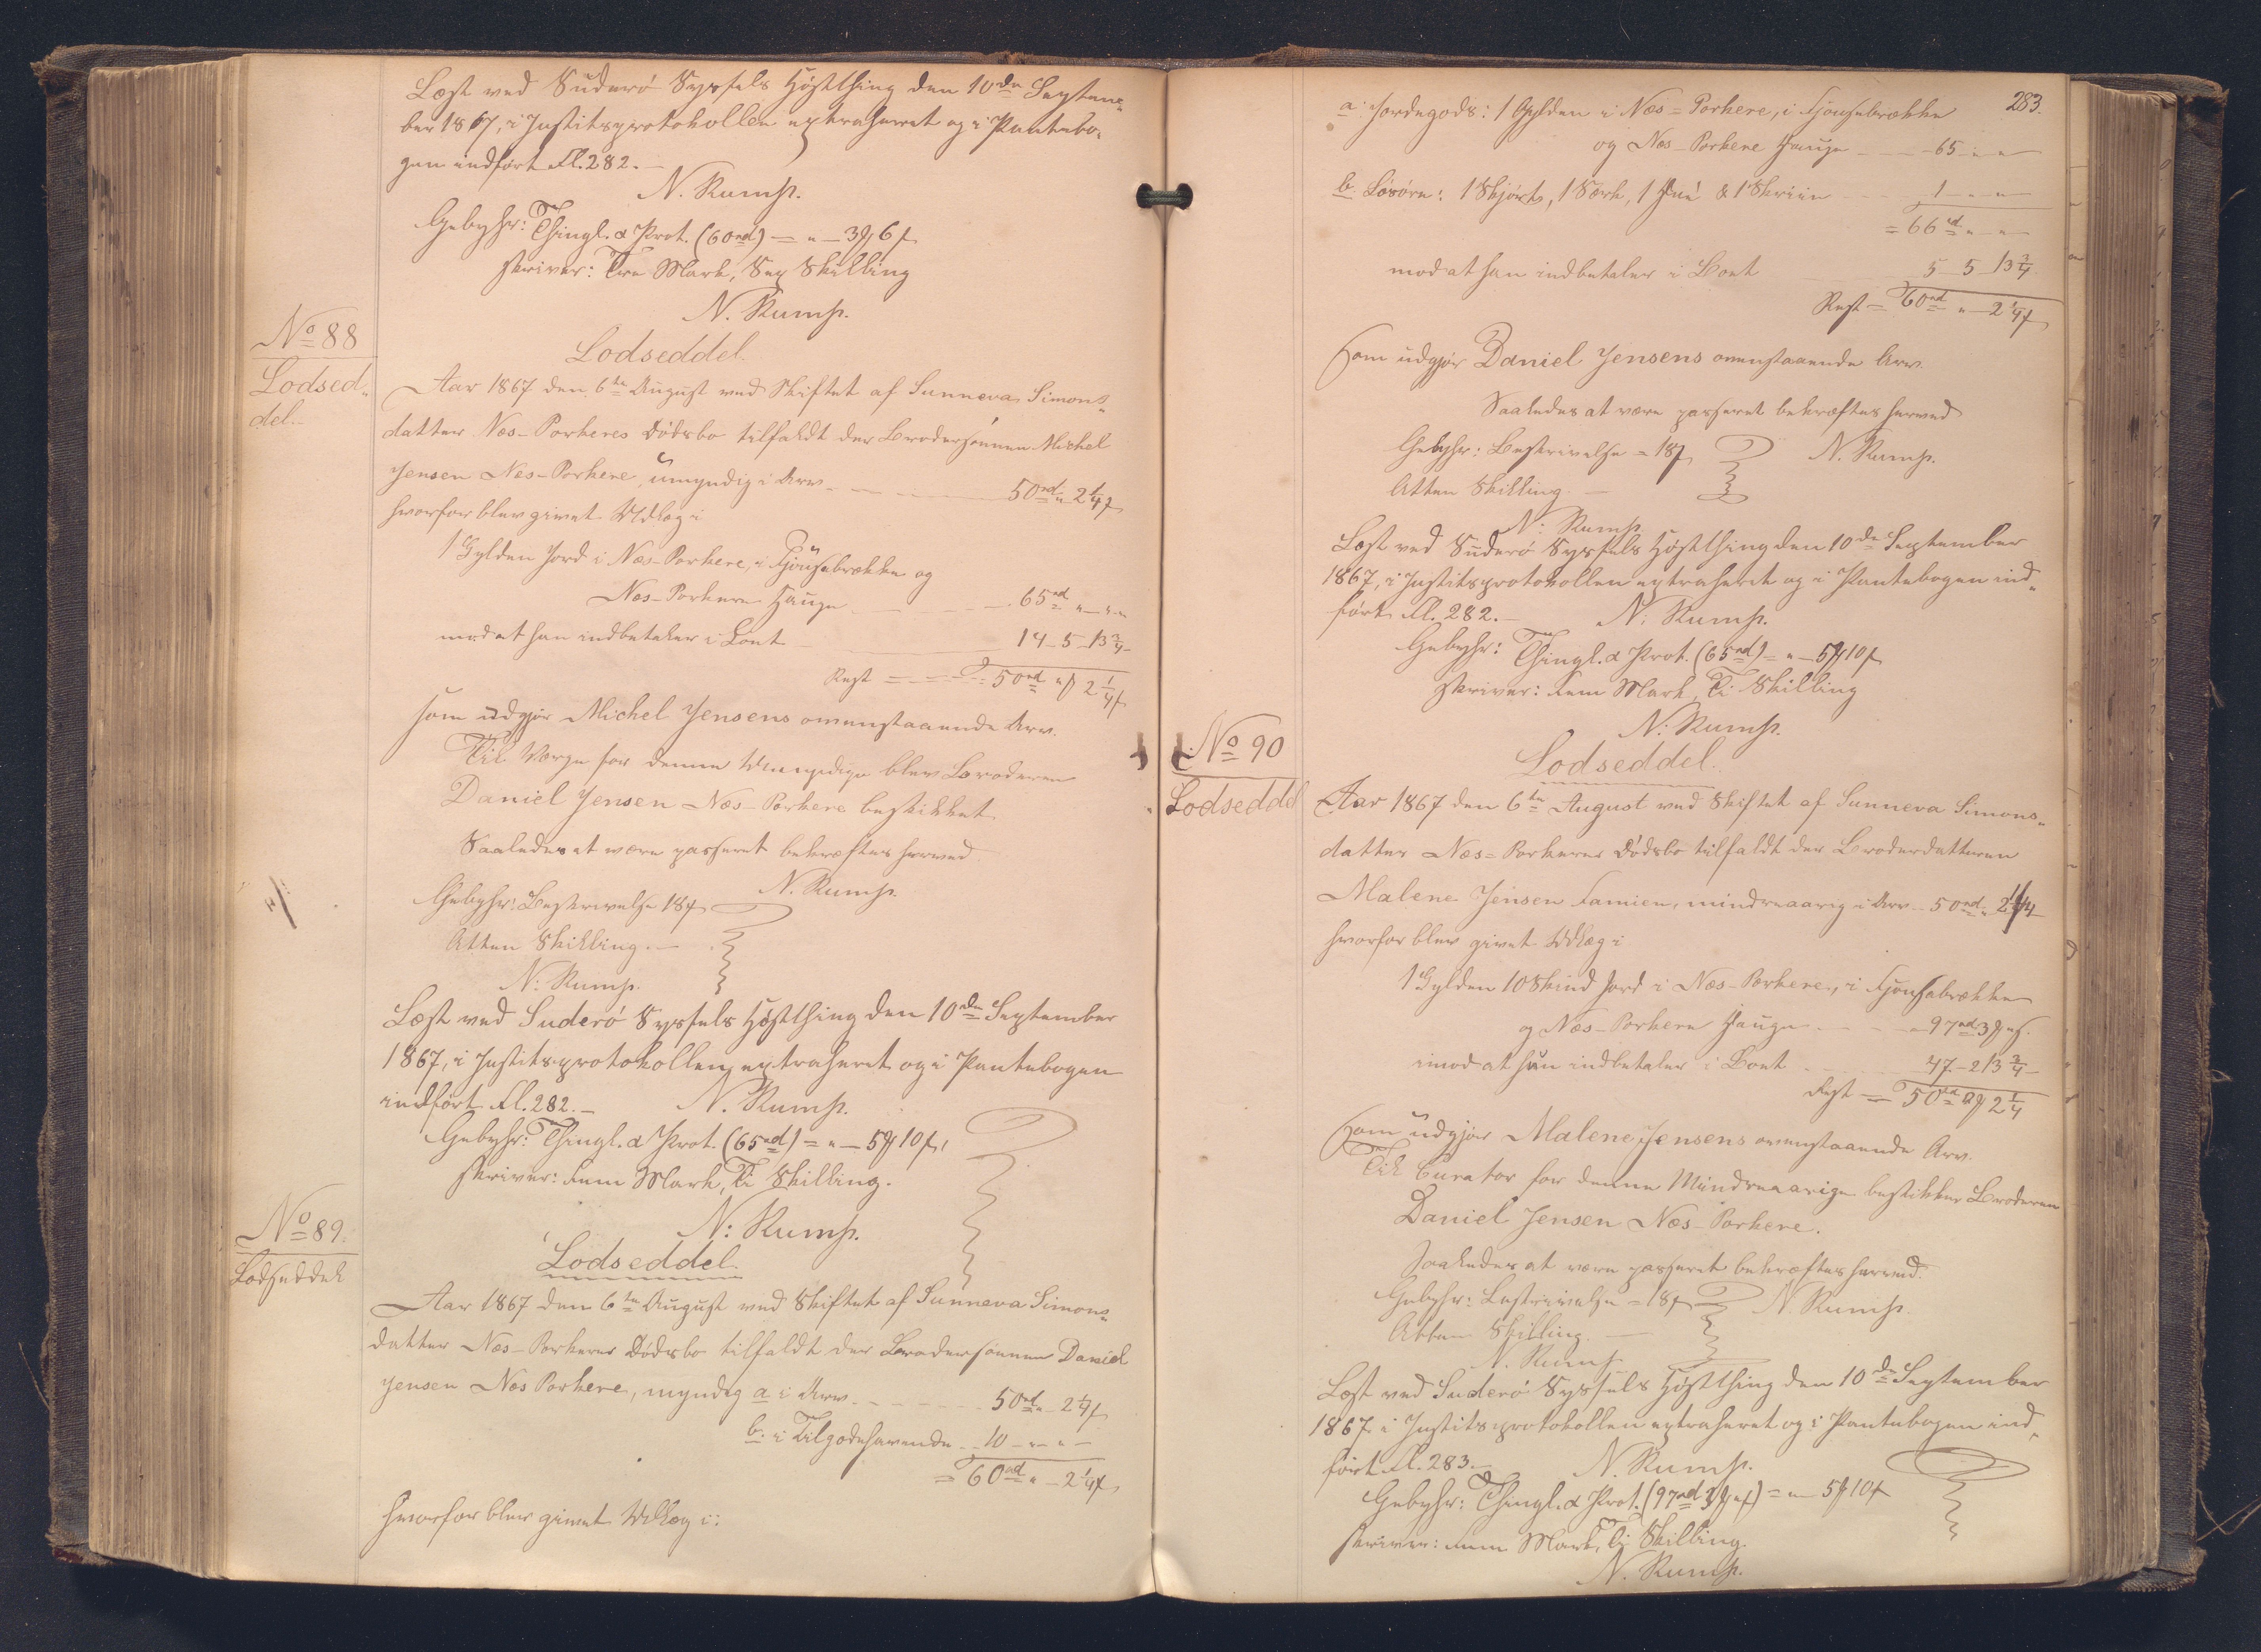 Læst ved Suderø Syssels Høstthing den 10de Septem„
ber 1867, i Justitsprotokollen extraheret og i Pantebo„
gen indført Fl. 282.
N. Rump.
Gebyhr: Thingl. & Prot. (60rd) = „ – 3 6
skriver: Tre Mark, Sex Skilling
N. Rump.
No 88
Lodsed„
del.
Lodseddel.
Aar 1867 den 6te August ved Skiftet af Sunneva Simons„
datter Næs-Porkeres Dødsbo tilfaldt der Brodersønnen Michel
Jensen Næs-Porkere, umyndig i Arv 50rd „ 2 1/4
hvorfor blev givet Udlæg i
1 Gylden Jord i Næs-Porkere, i Fjøusebrække og
Næs-Porkere Hauge 65rd „ – „ – „
mod at han indbetaler i Boet 14 – 5 – 13 3/4
Rest = 50rd „ 2 1/4
som udgjør Michel Jensens ovenstaaende Arv.
Til Værge for denne Umyndige blev Broderen
Daniel Jensen Næs-Porkere beskikket
Saaledes at være passeret bekræftes herved
N. Rump.
Gebyhr: Beskrivelse 18
Atten Skilling.
N: Rump.
Læst ved Suderø Syssels Høstthing den 10de September
1867, i Justitsprotokollen extraheret og i Pantebogen
indført Fl. 282. – N. Rump.
Gebyhr: Thingl. & Prot. (65rd) = „ – 5 10
skriver: Fem Mark, Ti Skilling.
N: Rump.
No 89.
Lodseddel
Lodseddel.
Aar 1867 den 6te August ved Skiftet af Sunneva Simons„
datter Næs-Porkeres Dødsbo tilfaldt der Brodersønnen Daniel
Jensen Næs Porkere, myndig a i Arv 50rd „ 2 1/4
b. i Tilgodehavende 10 – „ – „ –
= 60rd „ – 2 1/4
hvorfor blev givet Udlæg i:
283.
a. Jordegods: 1 Gylden i Næs-Porkere, i Fjøusebrække
og Næs-Porkere Hauge 65 „ „
b. Løsøre: 1 Skjørt, 1 Særk, 1 & 1 Skriin 1 – „ – „
= 66rd „ – „
mod at han indbetaler i Boet 5 – 5 – 13 3/4
Rest = 60rd „ – 2 1/4
som udgjør Daniel Jensens ovenstaaende Arv.
Saaledes at være passeret bekræftes herved
Gebyhr: Beskrivelse = 18 N. Rump.
Atten Skilling. –
N: Rump
Læst ved Suderø Syssels Høstthing den 10de September
1867, i Justitsprotokollen extraheret og i Pantebogen ind„
ført Fl. 282. – N. Rump.
Gebyhr: Thingl. & Prot. (65rd) = „ – 5 10
skriver: Fem Mark, Ti Skilling
N: Rump.
No 90
Lodseddel
Lodseddel.
Aar 1867 den 6te August ved Skiftet af Sunneva Simons„
datter Næs-Porkeres Dødsbo tilfaldt der Broderdatteren
Malene Jensen Famien, mindreaarig i Arv 50rd „ 2 1/4
hvorfor blev givet Udlæg i
1 Gylden 10 Skind Jord i Næs-Porkere, i Fjøusebrække
og Næs-Porkere Hauge 97rd 3 „
imod at hun indbetaler i Boet 47 – 2 13 3/4
Rest = 50rd 2 1/4
som udgjør Malene Jensens ovenstaaende Arv.
Til Curator for denne Mindreaarige beskikkes Broderen
Daniel Jensen Næs-Porkere.
Saaledes at være passeret bekræftes herved.
Gebyhr: Beskrivelse = 18 N. Rump.
Atten Skilling. –
N. Rump
Læst ved Suderø Syssels Høstthing den 10de September
1867, i Justitsprotokollen extraheret og i Pantebogen ind„
ført Fl. 283. – N. Rump.
Gebyhr: Thingl. & Prot. (97rd 3 „) = „ – 5 10
skriver: Fem Mark, Ti Skilling.
N. Rump.